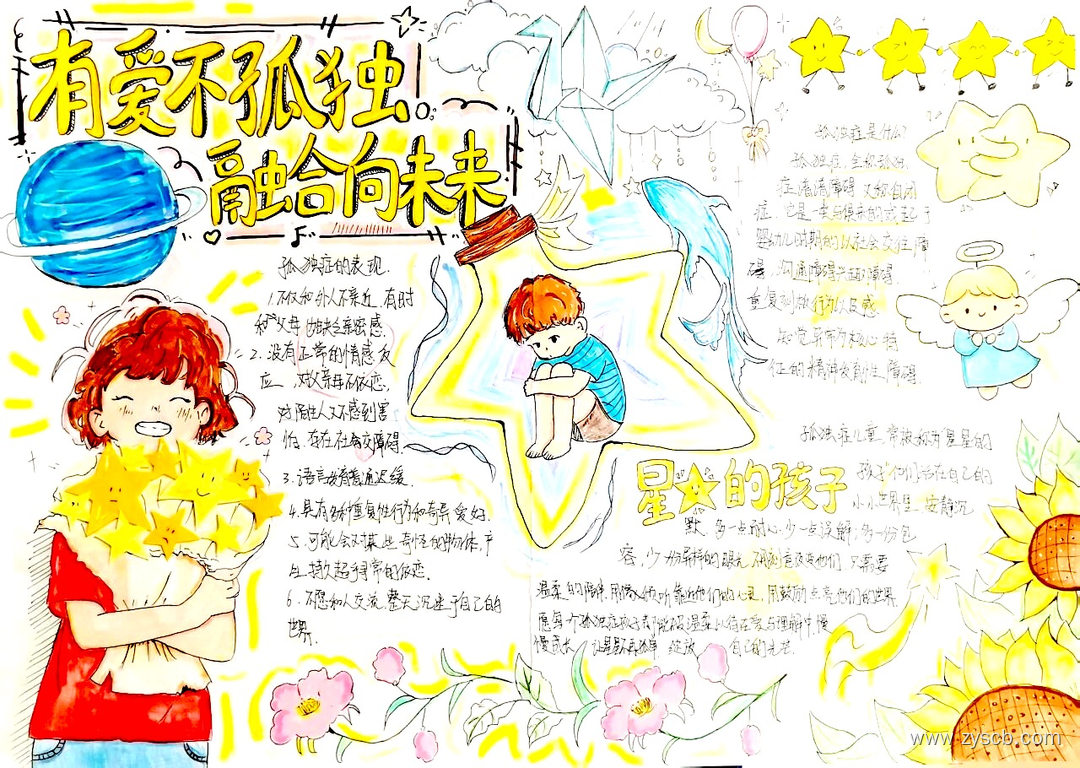 有爱不孤独
融合向未来
孤独症的表现
1.不仅和外人不亲近,有时
和父母也缺乏亲密感.
2.没有正常的情感反
应 对父母不依恋,
对陌生人又不感到害
怕.存在社会交往障碍.
3.语言发育普遍迟缓.
4.具有多种重复性行为和奇异爱好.
5.可能会对某些奇怪的物体产
生持久超乎寻常的依恋.
6.不愿和人交流,整天沉迷于自己的
世界.
孤独症是什么
孤独症 全称孤独
症谱系障碍 又称自闭
症.它是一类
婴幼儿时期的以社会交往障
碍,沟通障碍
重复刻板行为以及感
知觉异常为核心特
征的精神发育性障碍.
星的孩子
孤独症儿童,常被称为星星的
孩子 他们活在自己的
小小世界里 安静沉
默 多一点耐心,少一点误解,多一份包
容,少一份异样的眼光 不刻意改变他们 只需要
温柔的陪伴 用 靠近他们的心灵,用鼓励点亮他们的世界
愿每个孤独症孩子都能被温柔以待在爱与理解中慢
慢成长 让星星不再孤单 绽放 自己的光芒.
www.zyscb.com